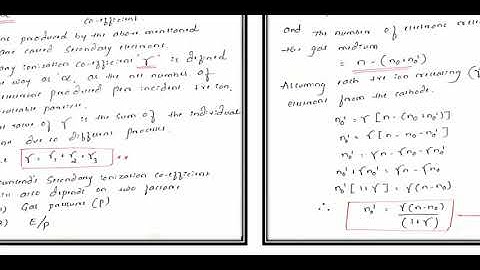 co-efficient
ne produced by the above mentioned
are called Secondary electrons.
ary ionization co-efficient 'γ' is defined
way as 'α', as the net number of
electrons produced per incident +ve ion,
value of γ is the sum of the individual
due to different process.
γ = γ1 + γ2 + γ3
Secondary ionization co-efficient
also depend on two factors
Gas pressure (p)
E/p
and the number of electrons
the gas medium
= n - (no + no')
Assuming each +ve ion releasing (γ
electrons from the cathode.
no' = γ [n - (no + no')]
no' = γn - γno - γno'
no' + γno' = γn - γno
no' [1 + γ] = γ(n - no)
∴ no' = γ(n - no) / (1 + γ)